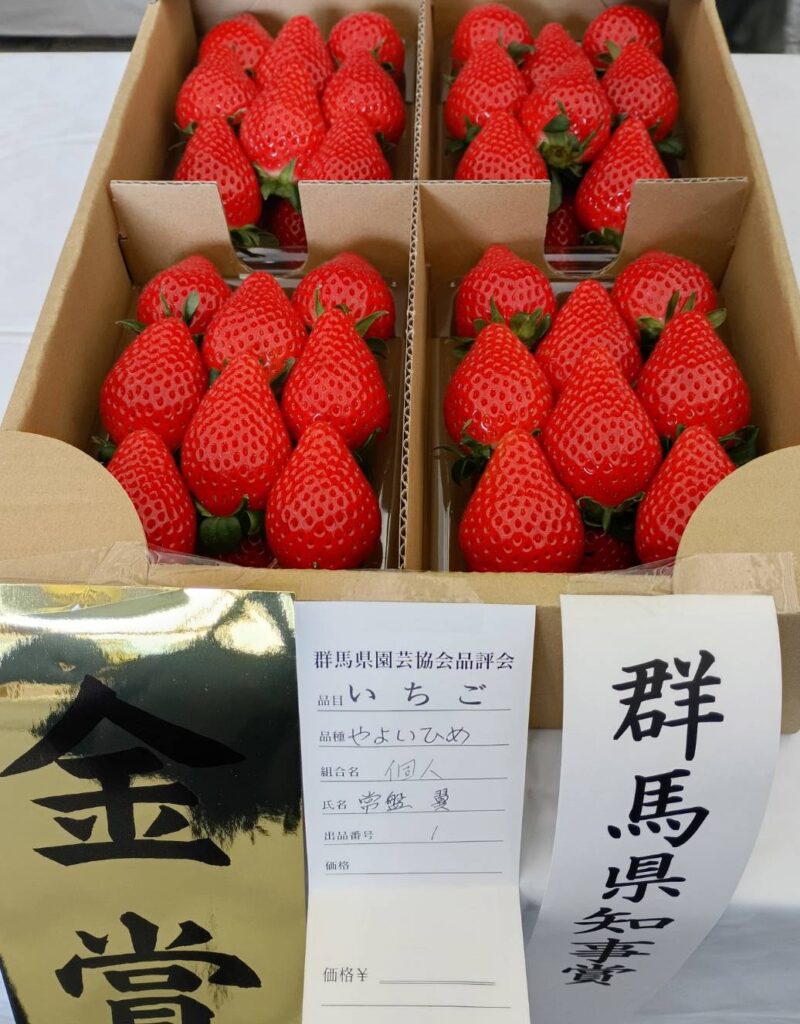 金賞
群馬県園芸協会品評会
品目 いちご
品種 やよいひめ
組合名 個人
氏名 常盤 翼
出品番号 1
価格
価格¥
群馬県知事賞